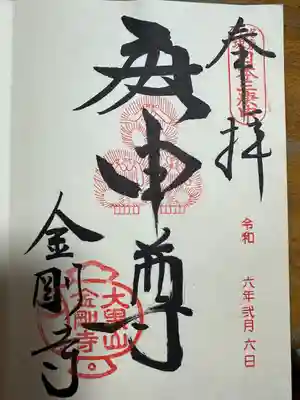 奉拝
令和 六年弐月六日
庚申尊
金剛寺
大黒山
金剛寺